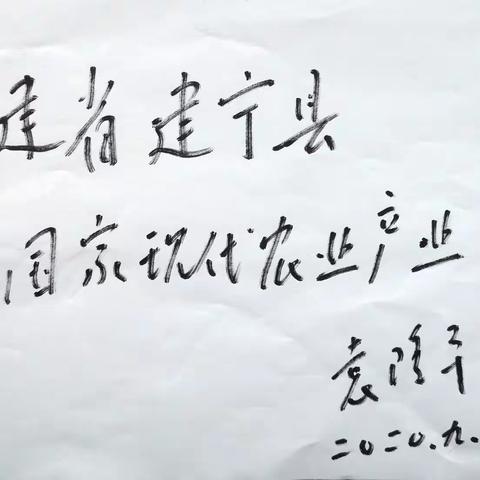 建省建宁县
国家现代农业产业
袁隆平
二〇二〇.九.